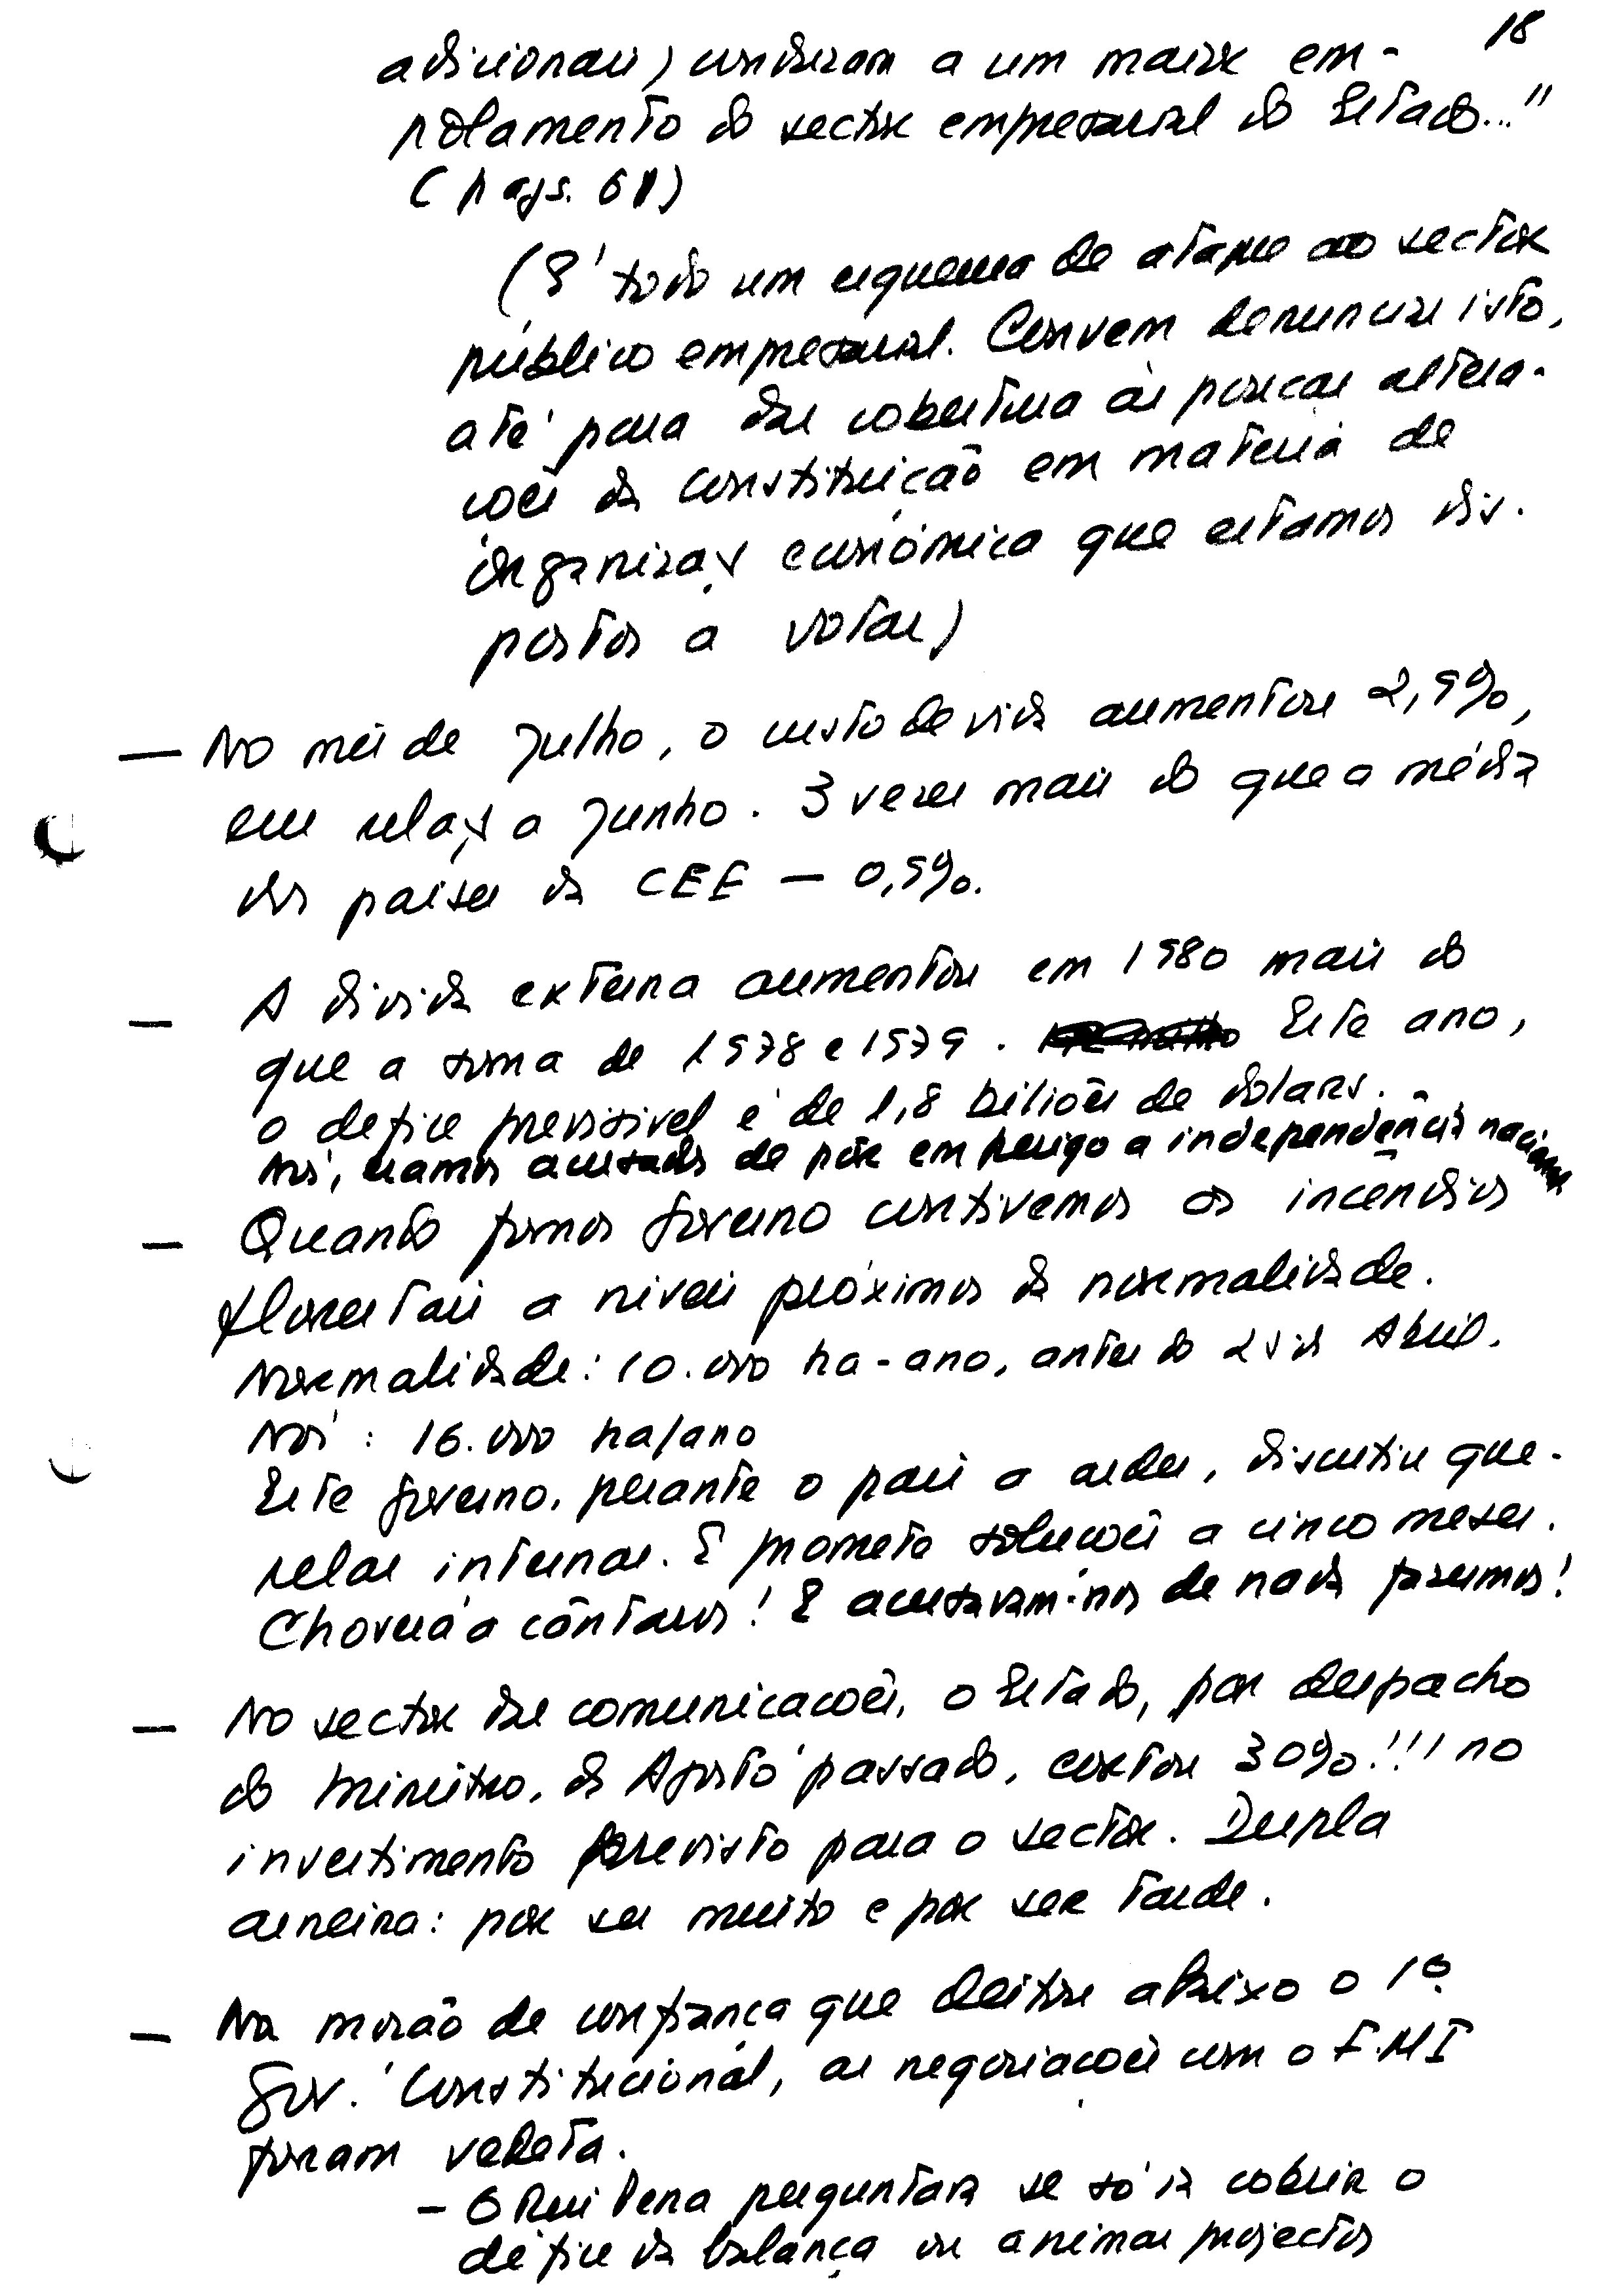 18
adicionais) conduziram a um maior em-
polamento do sector empresarial do Estado..."
(págs. 61)
(É todo um esquema de ataque ao sector
público empresarial. Convem denunciar isto,
até para dar cobertura às poucas altera-
ções da Constituição em matéria de
organização económica que estamos dis-
postos a votar)
— No mês de Julho, o custo de vida aumentou 2,5%,
em relação a Junho. 3 vezes mais do que a média
dos países da CEE — 0,5%.
— A dívida externa aumentou em 1980 mais do
que a soma de 1978 e 1979. Este ano,
o defice previsível é de 1,8 biliões de dolars.
Nós, eramos acusados de pôr em perigo a independência nacional
— Quando fomos Governo contivemos os incêndios
florestais a niveis próximos da normalidade.
Normalidade: 10.000 ha-ano, antes do 25 de Abril.
Nós: 16.000 ha/ano
Este Governo, perante o país a arder, discutiu que-
relas internas. E promete soluções a cinco meses.
Choverá a cântaros! E acusavam-nos de nada fazermos!
— No sector das comunicações, o Estado, por despacho
do Ministro, de Agosto passado, cortou 30%!!! no
investimento previsto para o sector. Dupla
asneira: por ser muito e por ser tarde.
— Na moção de confiança que deitou abaixo o 1º
Gov. Constitucional, as negociações com o F.M.I
foram vedeta.
— O Rui Pena perguntava se só ia cobrir o
défice da balança ou animar projectos